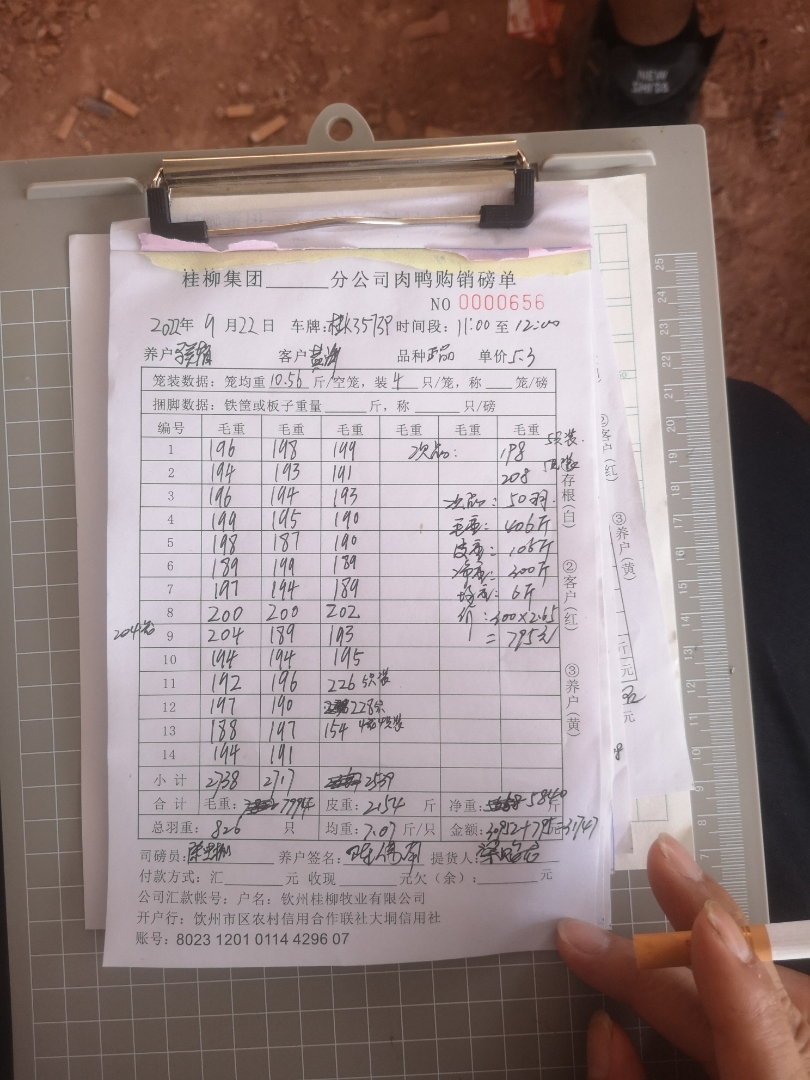 桂柳集团______分公司肉鸭购销磅单
NO 0000656
2022年9月22日 车牌:桂K35739 时间段:11:00至12:00
养户 客户 品种 正品 单价 5.3
笼装数据:笼均重10.56斤/空笼,装4只/笼,称___笼/磅
捆脚数据:铁筐或板子重量______斤,称______只/磅
编号 毛重 毛重 毛重 毛重 毛重 毛重
1 196 198 199 次品: 198 5只装
2 194 193 191 208
3 196 194 193 次品: 50羽
4 199 195 190 毛重: 406斤
5 198 187 190 皮重: 斤
6 189 199 189 净重: 300斤
7 197 194 189 均重: 6斤
8 200 200 202 价:300×2.65
204 9 204 189 193 = 795元
10 194 194 195
11 192 196 226 5只装
12 197 190 228
13 188 197 154
14 194 191
小计 2738 2717 2539
合计 毛重: 7994 皮重:2154 斤 净重: 5840 斤
总羽重:826 只 均重:7.07斤/只 金额:30952+795=31747
司磅员: 养户签名: 提货人:
付款方式:汇______元 收现______元欠(余):______元
公司汇款帐号:户名:钦州桂柳牧业有限公司
开户行:钦州市区农村信用合作联社大垌信用社
账号:8023 1201 0114 4296 07
存根(白)
②客户(红)
③养户(黄)
②客户(红)
③养户(黄)
斤
元
元
25
20
19
18
17
16
15
14
13
12
11
10
7
NEW